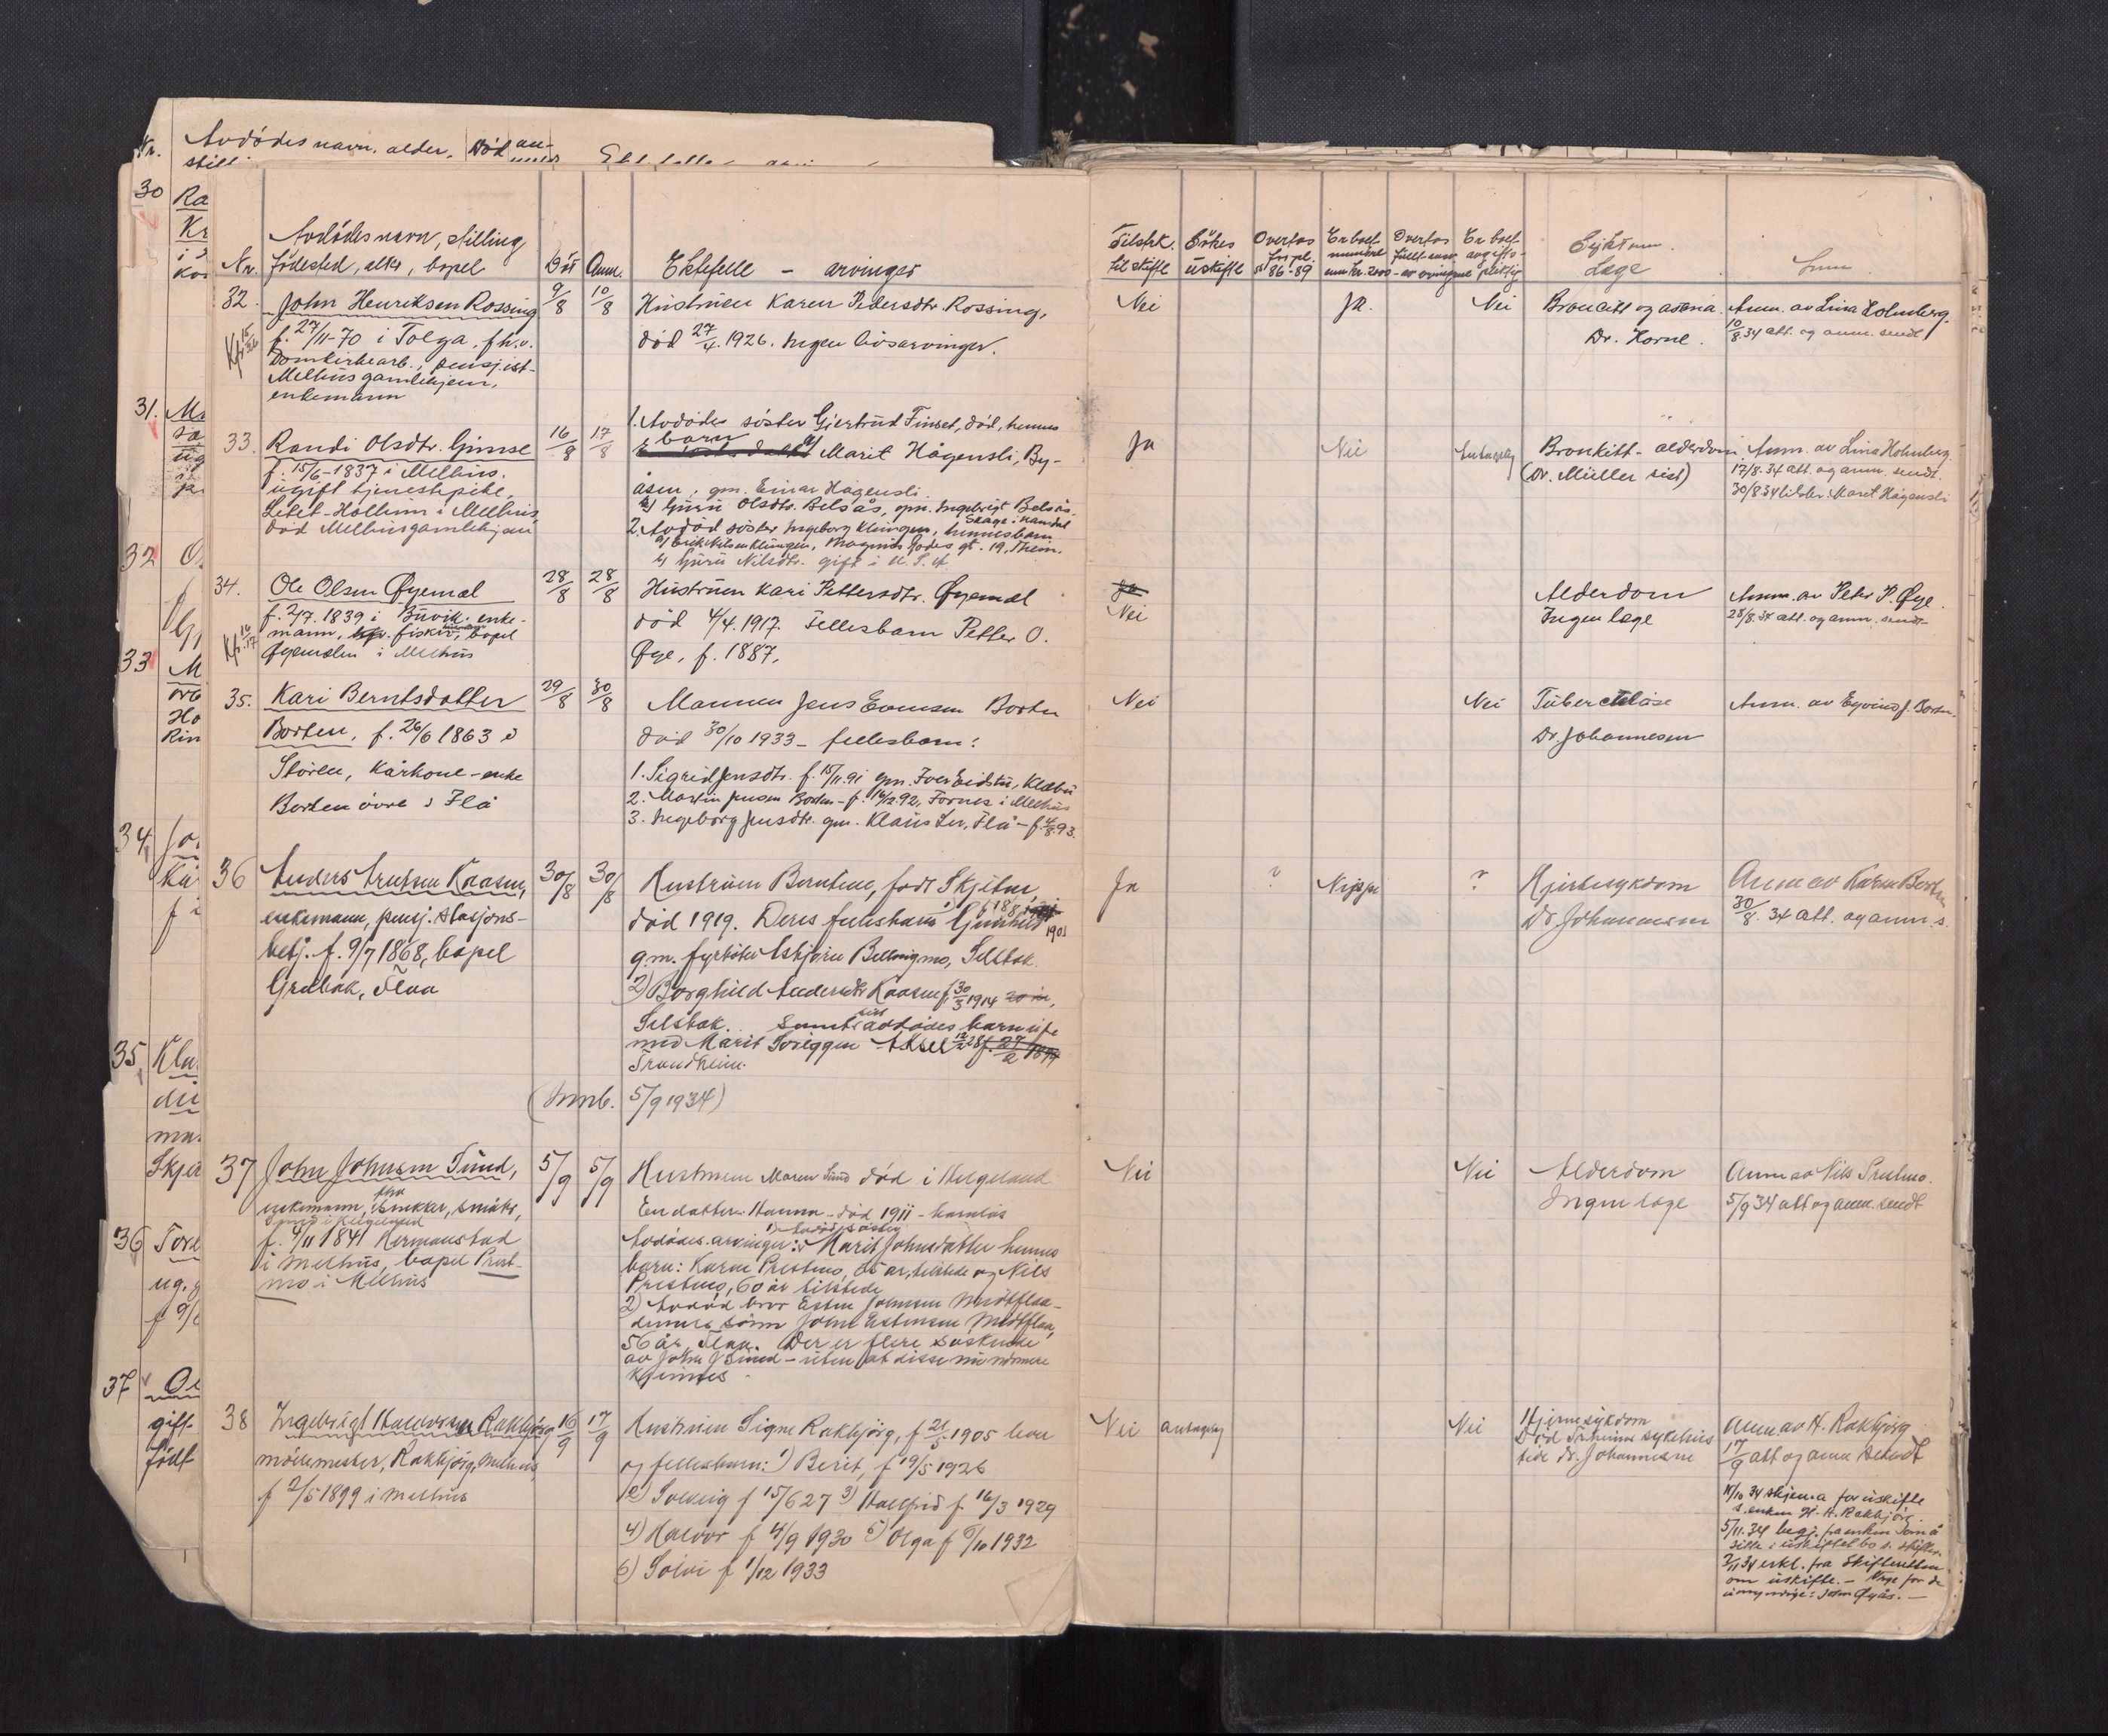 Nr. Avdødes navn, alder, Død an-
still
30 Ra
Kr
i
Kos
31. Ma
32 O
33 M
Ho
34
Ka
f i
35 Kla
du
ma
Skje
36 Tord
ug. g
f 9/
37 Ol
gift
født
Nr. Avdødes navn, stilling
fødested, alder, bopel
Død Anm. Ektefelle - arvinger
32. John Henriksen Rossing 9/8 10/8
f. 27/11-70 i Tolga, fhv.
Domkirkearb., pensjist-
Melhus gamlehjem,
enkemann
Hustruen Karen Pedersdtr. Rossing,
død 27/4. 1926. Ingen livsarvinger.
33. Randi Olsdtr. Gimse 16/8 17/8
f. 15/6-1837 i Melhus.
ugift tjenestepike,
død Melhus gamlehjem
1. Avdødes søster Gjertrud Finset, død, hennes
barn a) Marit Hågensli, By-
åsen, gm. Einar Hågensli.
b) Guru Olsdtr. Belsås, gm. Ingebrigt Belsås.
2. Avdød søster Ingeborg Klungen, hennes barn
a) Erik Nilsen Klungen, Magnus Godes gt. 19, Thein.
b) Guru Nilsdtr. gift i U.S.A.
34. Ole Olsen Øyemæl 28/8 28/8
f. 2/7. 1839 i Buvik. enke-
mann, fisker, bopel
i Melhus
Hustruen Kari Pettersdtr. Øyemæl
død 4/4. 1917. Fellesbarn Petter O.
Øye, f. 1887.
35. Kari Berntsdatter 29/8 30/8
Borten, f. 26/6 1863 i
Støren, Kårkone - enke
Borten øvre i Flå
Mannen Jens Evensen Borten
død 30/10 1933 - fellesbarn:
1. Sigrid Jensdtr. f. 15/11.91 gm. Iver Eidstu, Klæbu
2. Martin Jensen Borten - f. 16/12.92, Fornes i Melhus
3. Ingeborg Jensdtr. gm. Klaus Ler, Flå - f. 4/8.93.
36 Anders Arntsen Kaasen, 30/8 30/8
enkemann, pensj. stasjons-
betj. f. 9/7 1868, bopel
Grubak, Flaa
Hustruen Berntine, født Skjetne,
død 1919. Deres fellesbarn 1) Gunhild 1901
g.m. fyrbøter Asbjørn Bellingmo, Selsbak.
2) Borghild Andersdtr Kaasen f. 30/3 1914
Selsbak. Samt avdødes barn
med Marit Soleggen Aksel
Trondheim.
(Innb. 5/9 1934)
37 John Johnsen Sund, 5/9 5/9
enkemann, fhv snekker, småkr,
Sund i Helgeland
f. 4/11 1841 Hermanstad
i Melhus, bopel Prest-
mo i Melhus
Hustruen Maren Sund død i Helgeland
En datter: Hanna - død 1911 - barnløs
Avdødes arvinger: 1) Avdød søster Marit Johnsdatter hennes
barn: Karen Prestmo, år, tilstede og Nils
Prestmo, 60 år tilstede
2) Avdød bror Esten Johnsen Midtflaa -
dennes sønn John Estensen Midtflaa,
56 år, Flaa. Der er flere søskende
av John J Sund - uten at disse nu nærmere
kjennes.
38 Ingebrigt Halvorsen Rakbjørg 16/9 17/9
møllemester, Rakbjørg, Melhus
f 2/5 1899 i Melhus
Hustruen Signe Rakbjørg, f 21/5 1905 lever
og fellesbarn: 1) Berit, f 19/5 1926
2) Solveig f 15/6 27 3) Hallfrid f. 16/3 1929
4) Halvor f 4/9 1930 5) Olga f /10 1932
6) Solvi f 1/12 1933
Tilstrk. til skifte
Søkes uskifte
Overtas 86-89
Er boet mindre enn kr. 2000
Overtas fullt ansv. av arvingene
Er boet avgifts-pliktig
Sykdom.
Læge
Anm.
Nei Ja. Nei Bronkitt og astma. Anm. av Lina Holmberg.
Dr. Horne. 10/8.34 att. og anm. sendt
Ja Nei Antagelig Bronkitt - alderdom. Anm. av Lina Holmberg.
(Dr. Müller sist) 17/8.34 att. og anm. sendt.
30/8.34 Marit Hågensli
Ja Alderdom Anm. av Peter P. Øye.
Nei Ingen læge 28/8.34 att. og anm. sendt-
Nei Nei Tuberculose Anm. av Eyvind J. Borten.
Dr. Johannesen
Ja ? Neppe ? Hjertesykdom Anm av Karen Borten
Dr Johannesen 30/8. 34 att. og anm. s.
Nei Nei Alderdom Anm av Nils Prestmo.
Ingen læge 5/9 34 att og anm. sendt
Nei antagelig Nei Hjernesykdom Anm av H. Rakbjørg
Død sykehus 17/9 att og anm sendt
dr. Johannesen
34 skjema for uskifte
s. enken H. Rakbjørg.
5/11.34 begj. fra enken om å
sitte i uskiftet bo s. skifter.
7/11 34 erkl. fra Skifteretten
om uskifte. - Verge for de
umyndige: John Øyås. -